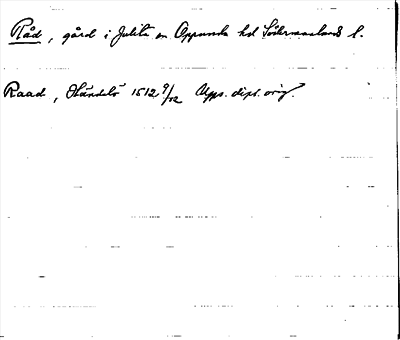 Råd, gård i Julita sn Oppunda hd Södermanlands l.
Raad, Ökändelö 1512 9/12 Upps. dipl. orig.